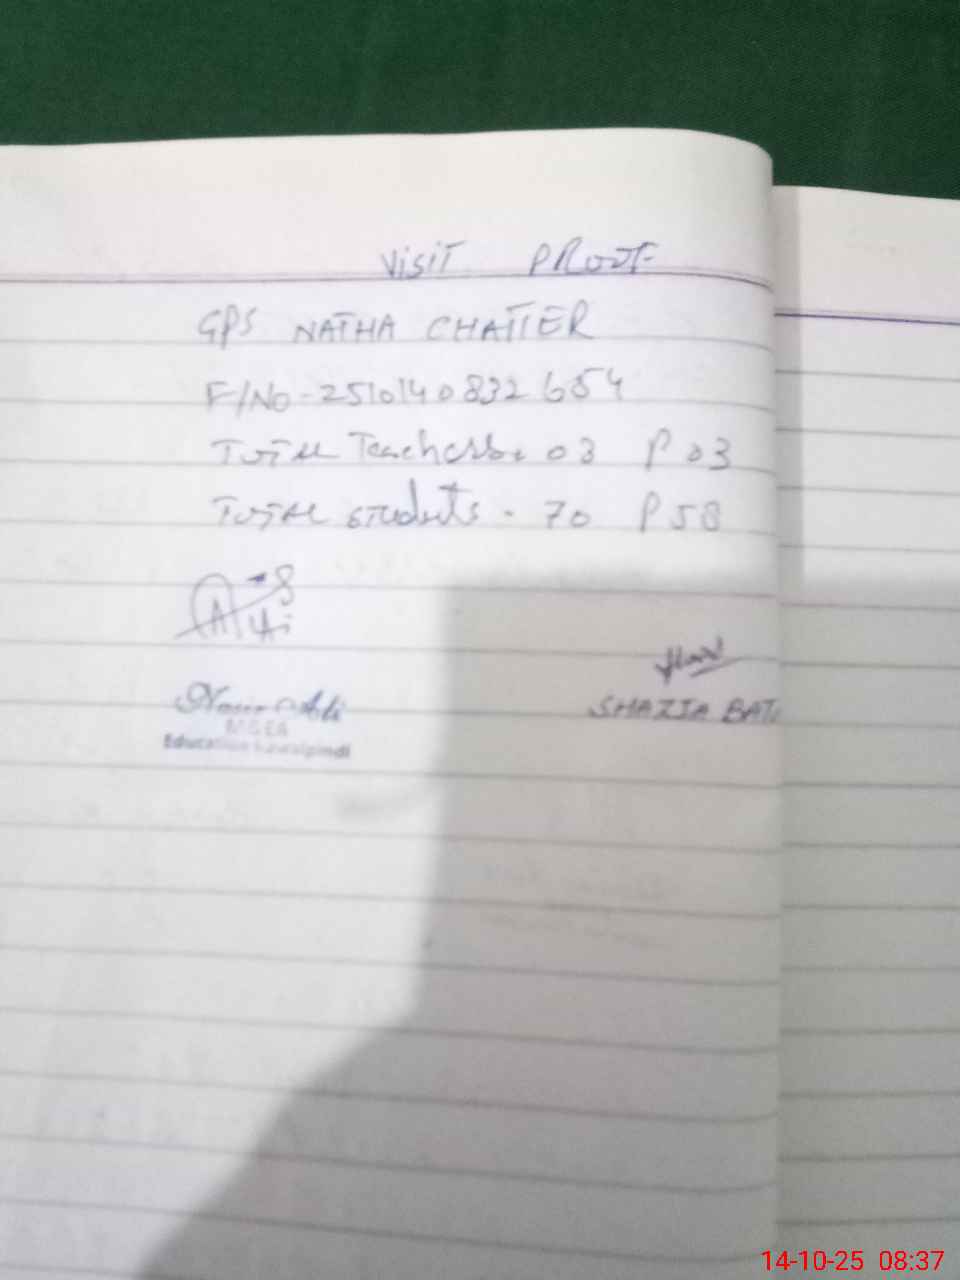 VISIT PROOF
GPS NATHA CHATTER
F/NO - 2510140832654
TOTAL Teachers. 03 P 03
TOTAL students - 70 P 58
Ali
SHAZIA BATU
Nasir Ali
MGEA
Education Rawalpindi
14-10-25 08:37